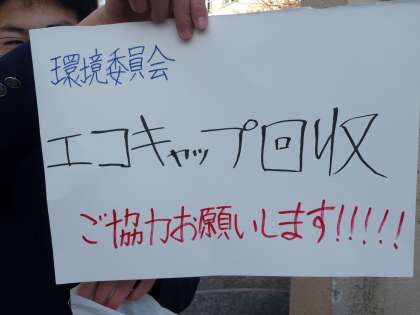 環境委員会
エコキャップ回収
ご協力お願いします!!!!!